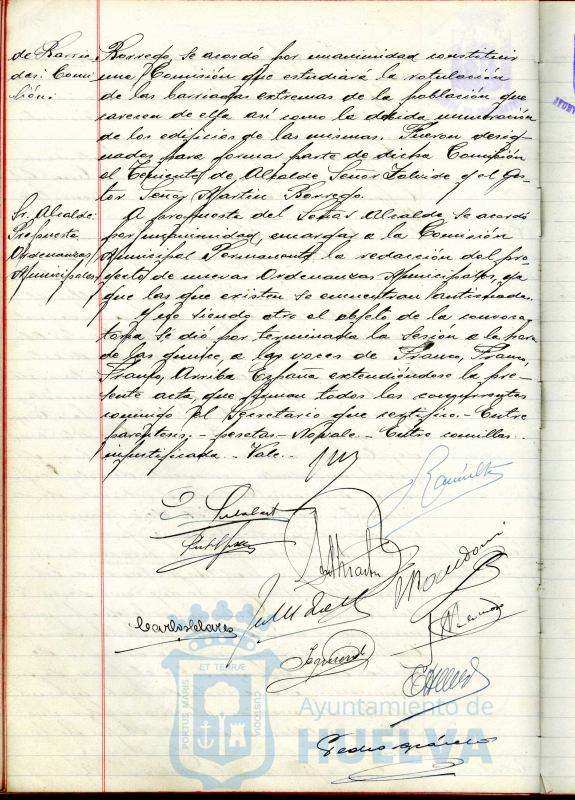 de Barria
das: Comi
sión:
Borrego, se acordó por unanimidad constituir
una Comisión que estudiará la rotulación
de las barriadas extremas de la población que
carecen de ella así como la debida numeración
de los edificios de las mismas. Fueron desig-
nados para formar parte de dicha Comisión
el Teniente de Alcalde Señor y el Ges-
tor Señor Martin Borrego.
Sr. Alcalde:
Propuesta
Ordenanzas
Municipales
A propuesta del Señor Alcalde, se acordó
por unanimidad, encargar a la Comisión
Municipal Permanente la redacción del pro-
yecto de nuevas Ordenanzas Municipales, ya
que las que existen se encuentran anticuadas.
Y no siendo otro el objeto de la convoca-
toria se dió por terminada la sesión a la hora
de las quince, a las voces de Franco, Franco,
Franco, Arriba España extendiéndose la pre-
sente acta, que firman todos los concurrentes
conmigo el Secretario que certifico.- Entre
parentesis.- pesetas.- No vale.- Entre comillas..
injustificada.- Vale.-
Carlos
Pedro
PORTUS MARIS ET TERRÆ CUSTODIA
Ayuntamiento de
HUELVA